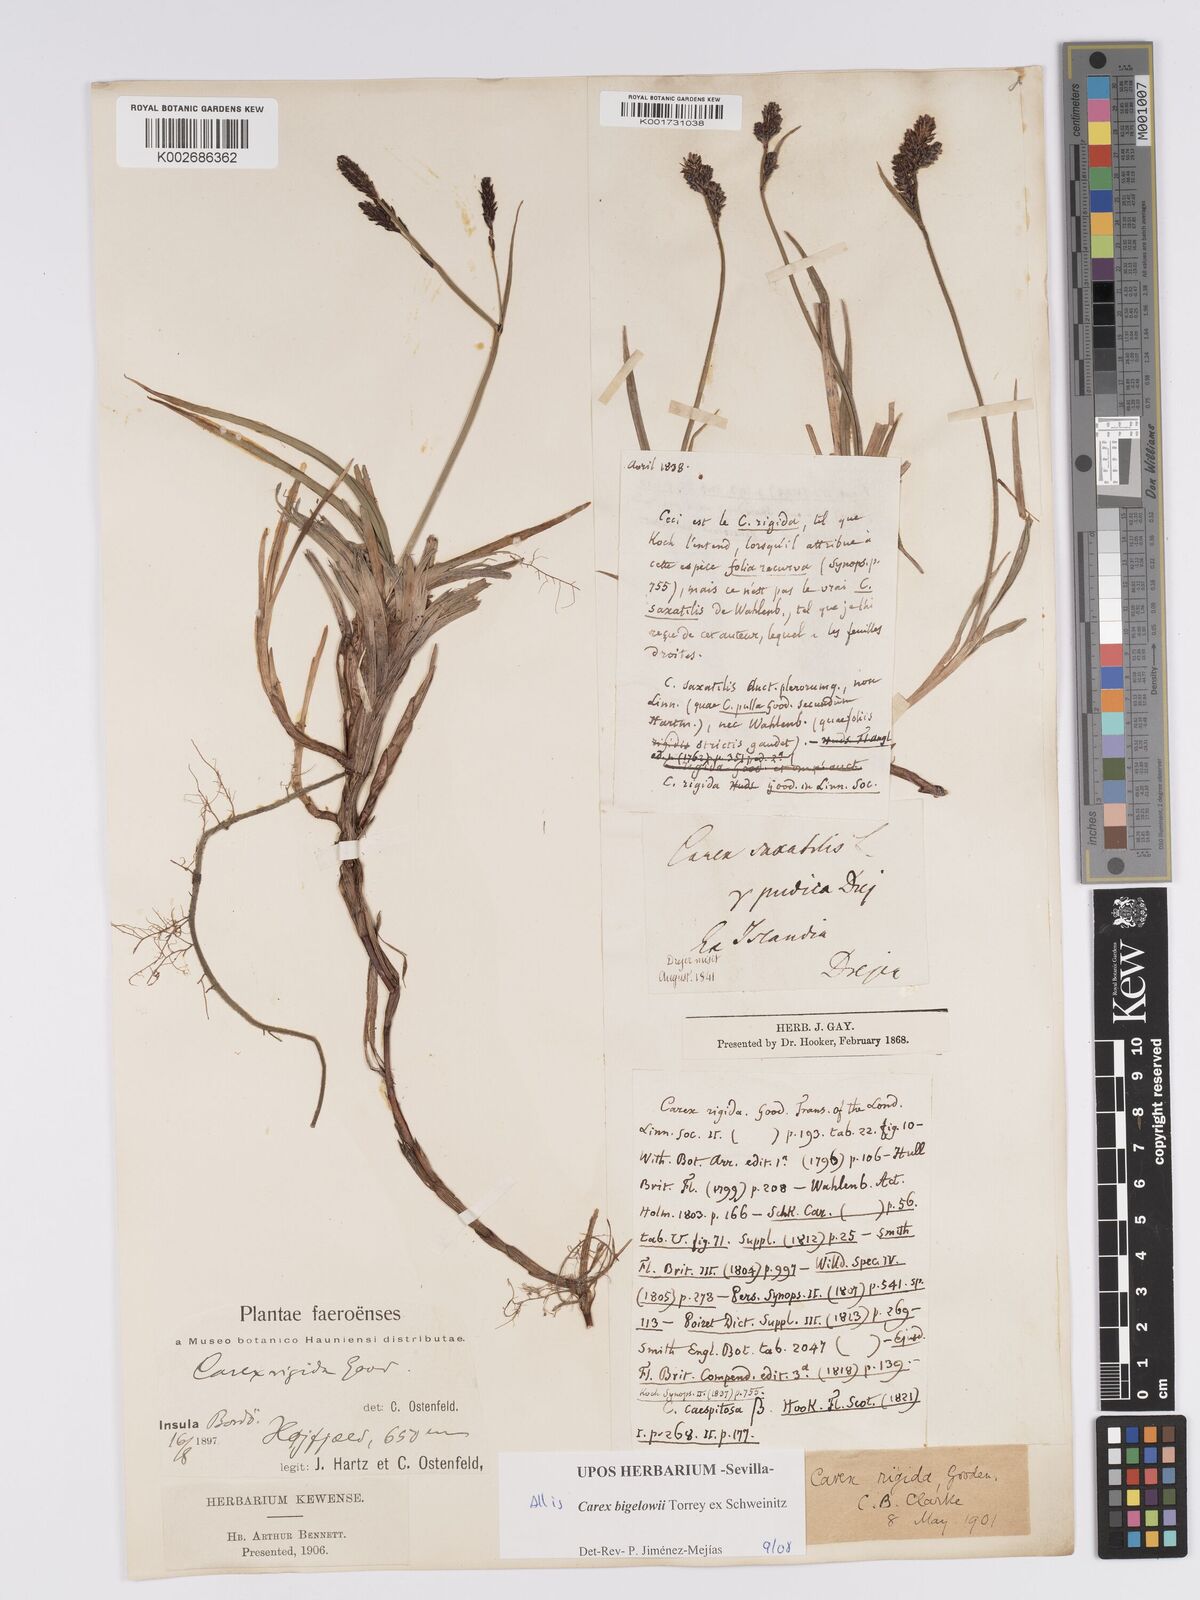 ROYAL BOTANIC GARDENS KEW
K002686362
ROYAL BOTANIC GARDENS KEW
K001731038
Avril 1838.
Ceci est le C. rigida, tel que
Koch l'entend, lorsqu'il attribue à
cette espèce folia recurva (Synops. p.
755), mais ce n'est pas le vrai C.
saxatilis de Wahlenb., tel que je l'ai
reçu de cet auteur, lequel a les feuilles
droites.
C. saxatilis Auct. plerorumq., non
Linn. (quae C. pulla Good. secundum
Hartm.), nec Wahlenb. (quae foliis
rigidis strictis gaudet). — Huds Fl. angl
ed. (1762) p. 351, ed. 2ª
C. rigida Good. et omn. auct.
C. rigida Huds Good. in Linn. Soc.
Carex saxatilis L
γ pudica Drej
Ex Islandia
Drejer misit
August. 1841
Drejer
HERB. J. GAY.
Presented by Dr. Hooker, February 1868.
Carex rigida. Good. Trans. of the Lond.
Linn. Soc. II. ( ) p. 193. tab. 22. fig. 10 —
With. Bot. Arr. edit. 1ª (1796) p. 106 — Hull
Brit. Fl. (1799) p. 208 — Wahlenb. Act.
Holm. 1803. p. 166 — Schk. Car. ( ) p. 56.
tab. U. fig. 71. Suppl. (1812) p. 25 — Smith
Fl. Brit. III. (1804) p. 997 — Willd. Spec. IV.
(1805) p. 273 — Pers. Synops. II. (1807) p. 541. sp.
113 — Poiret Dict. Suppl. III. (1813) p. 269 —
Smith Engl. Bot. tab. 2047 ( ) — Ejusd.
Fl. Brit. Compend. edit. 3ª (1818) p. 139. —
Koch Synops. II. (1837) p. 755.
C. caespitosa β. Hook. Fl. Scot. (1821)
I. p. 268. II. p. 177.
Plantae faeroënses
a Museo botanico Hauniensi distributae.
Carex rigida Good.
det: C. Ostenfeld.
Insula Bordö.
16/8 1897. Højfjæld, 650 m
legit: J. Hartz et C. Ostenfeld,
HERBARIUM KEWENSE.
HB. ARTHUR BENNETT.
Presented, 1906.
UPOS HERBARIUM -Sevilla-
All is Carex bigelowii Torrey ex Schweinitz
Det-Rev- P. Jiménez-Mejías 9/08
Carex rigida, Gooden.
C. B. Clarke
8 May 1901
centimeters
inches
M001007
Don Williams
Royal Botanic Gardens
Kew
0 1 2 3 4 5 6 7 8 9 10
copyright reserved